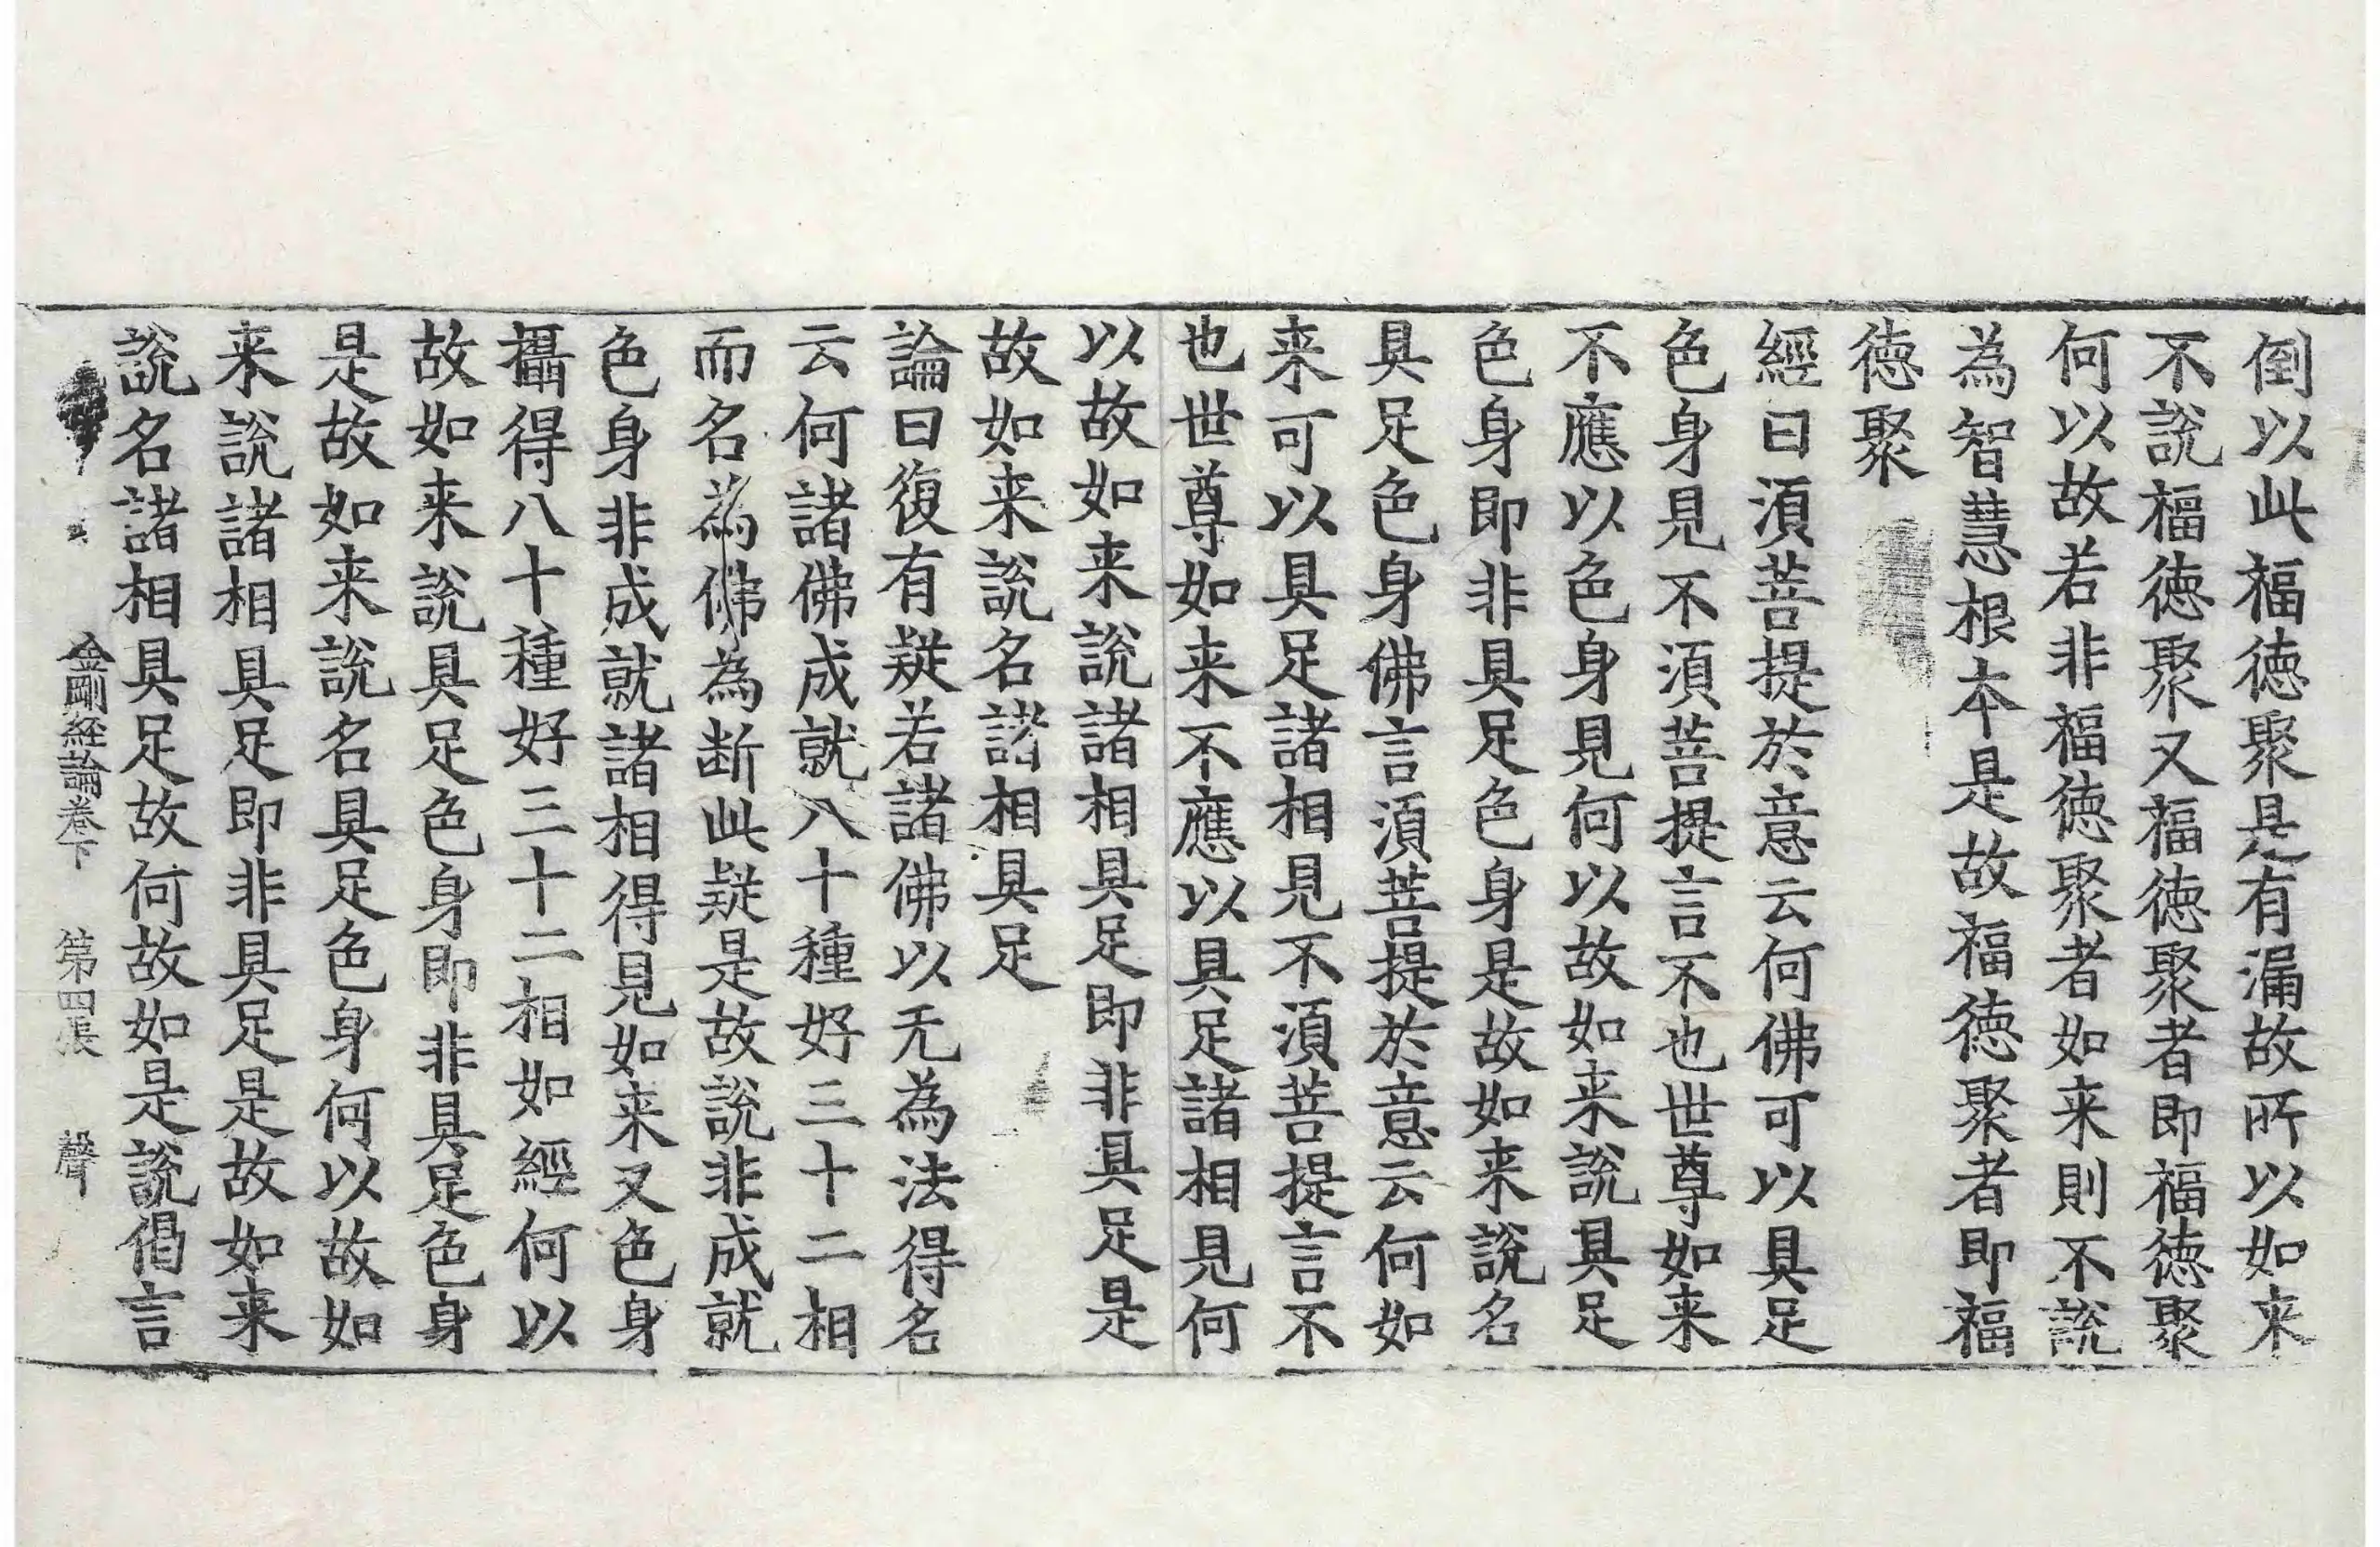 倒以此福德聚是有漏故所以如来
不説福德聚又福德聚者即福德聚
何以故若非福德聚者如来則不説
為智慧根本是故福德聚者即福
德聚
經曰湏菩提於意云何佛可以具足
色身見不湏菩提言不也世尊如来
不應以色身見何以故如来說具足
色身即非具足色身是故如来說名
具足色身佛言湏菩提於意云何如
来可以具足諸相見不湏菩提言不
也世尊如来不應以具足諸相見何
以故如来說諸相具足即非具足是
故如来說名諸相具足
論曰復有疑若諸佛以无為法得名
云何諸佛成就八十種好三十二相
而名為佛為断此疑是故說非成就
色身非成就諸相得見如来又色身
攝得八十種好三十二相如經何以
故如来說具足色身即非具足色身
是故如来說名具足色身何以故如
来說諸相具足即非具足是故如来
說名諸相具足故何故如是說偈言
金剛経論卷下 第四張 聲